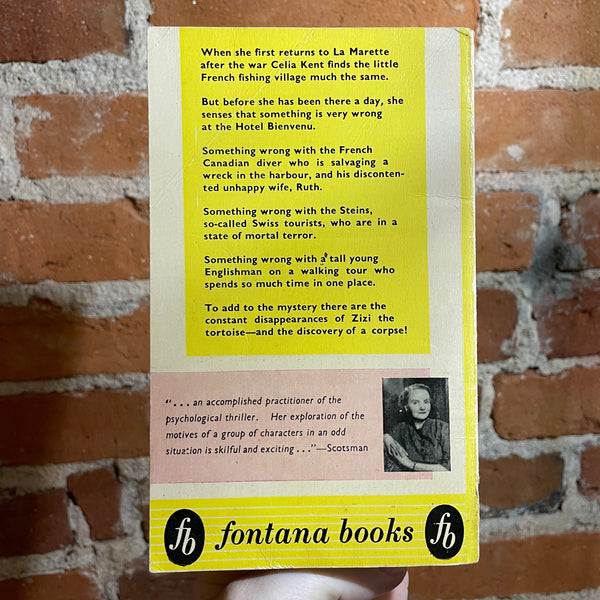 When she first returns to La Marette
after the war Celia Kent finds the little
French fishing village much the same.
But before she has been there a day, she
senses that something is very wrong
at the Hotel Bienvenu.
Something wrong with the French
Canadian diver who is salvaging a
wreck in the harbour, and his disconten-
ted unhappy wife, Ruth.
Something wrong with the Steins,
so-called Swiss tourists, who are in a
state of mortal terror.
Something wrong with a tall young
Englishman on a walking tour who
spends so much time in one place.
To add to the mystery there are the
constant disappearances of Zizi the
tortoise—and the discovery of a corpse!
"... an accomplished practitioner of the
psychological thriller. Her exploration of the
motives of a group of characters in an odd
situation is skilful and exciting ..."—Scotsman
fb fontana books fb